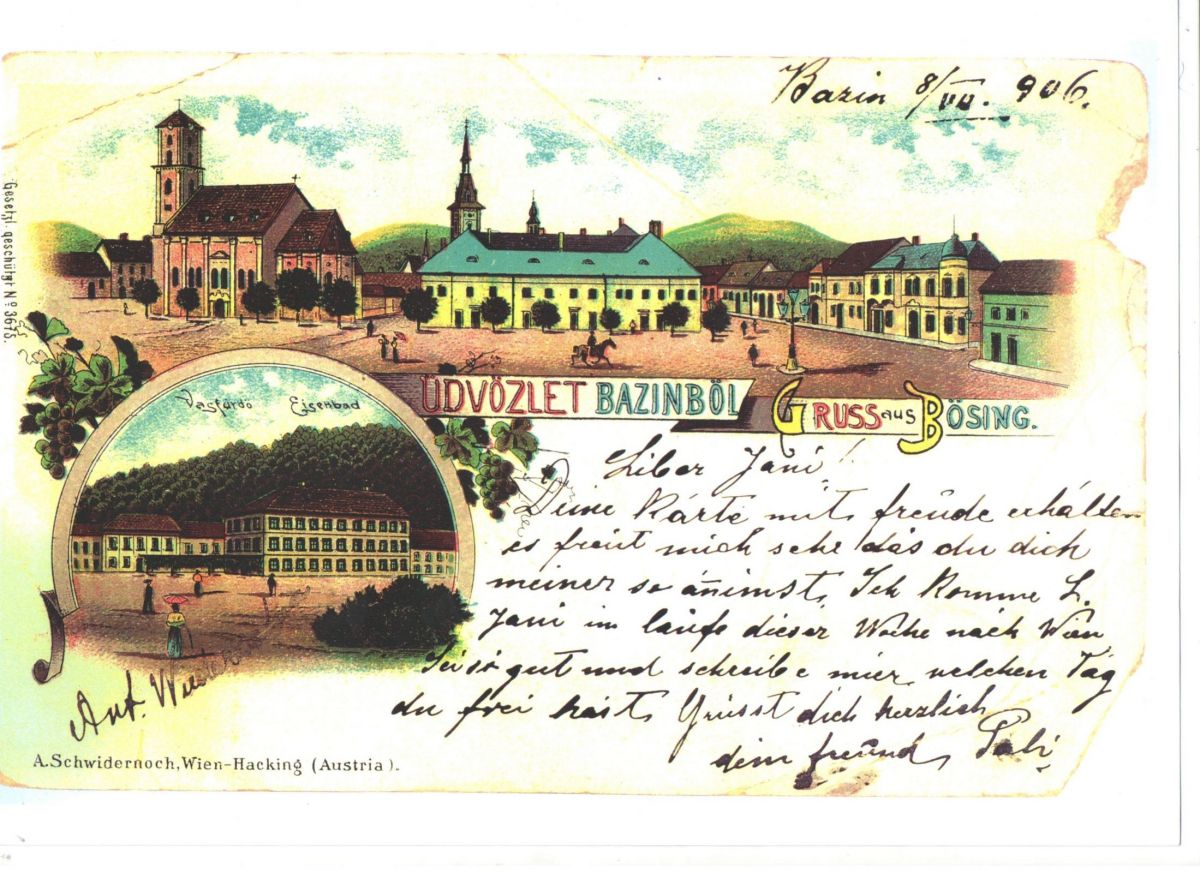 Bazin 8/VII. 906.
Gesetzl. geschützt Nº 3675.
Vasfürdö Eisenbad
ÜDVÖZLET BAZINBÖL
GRUSS AUS BÖSING.
Liber Jani!
Deine Kárte mit freude erhálten
es freut mich sehr dás du dich
meiner so ánimst, Ich komme L.
Jani im láufe dieser Woche nách Wien
Sei só gut und schreibe mier welchen Tág
du frei hást, Grüsst dich herzlich
dein freund, Pali
Ant.
A. Schwidernoch, Wien-Hacking (Austria).